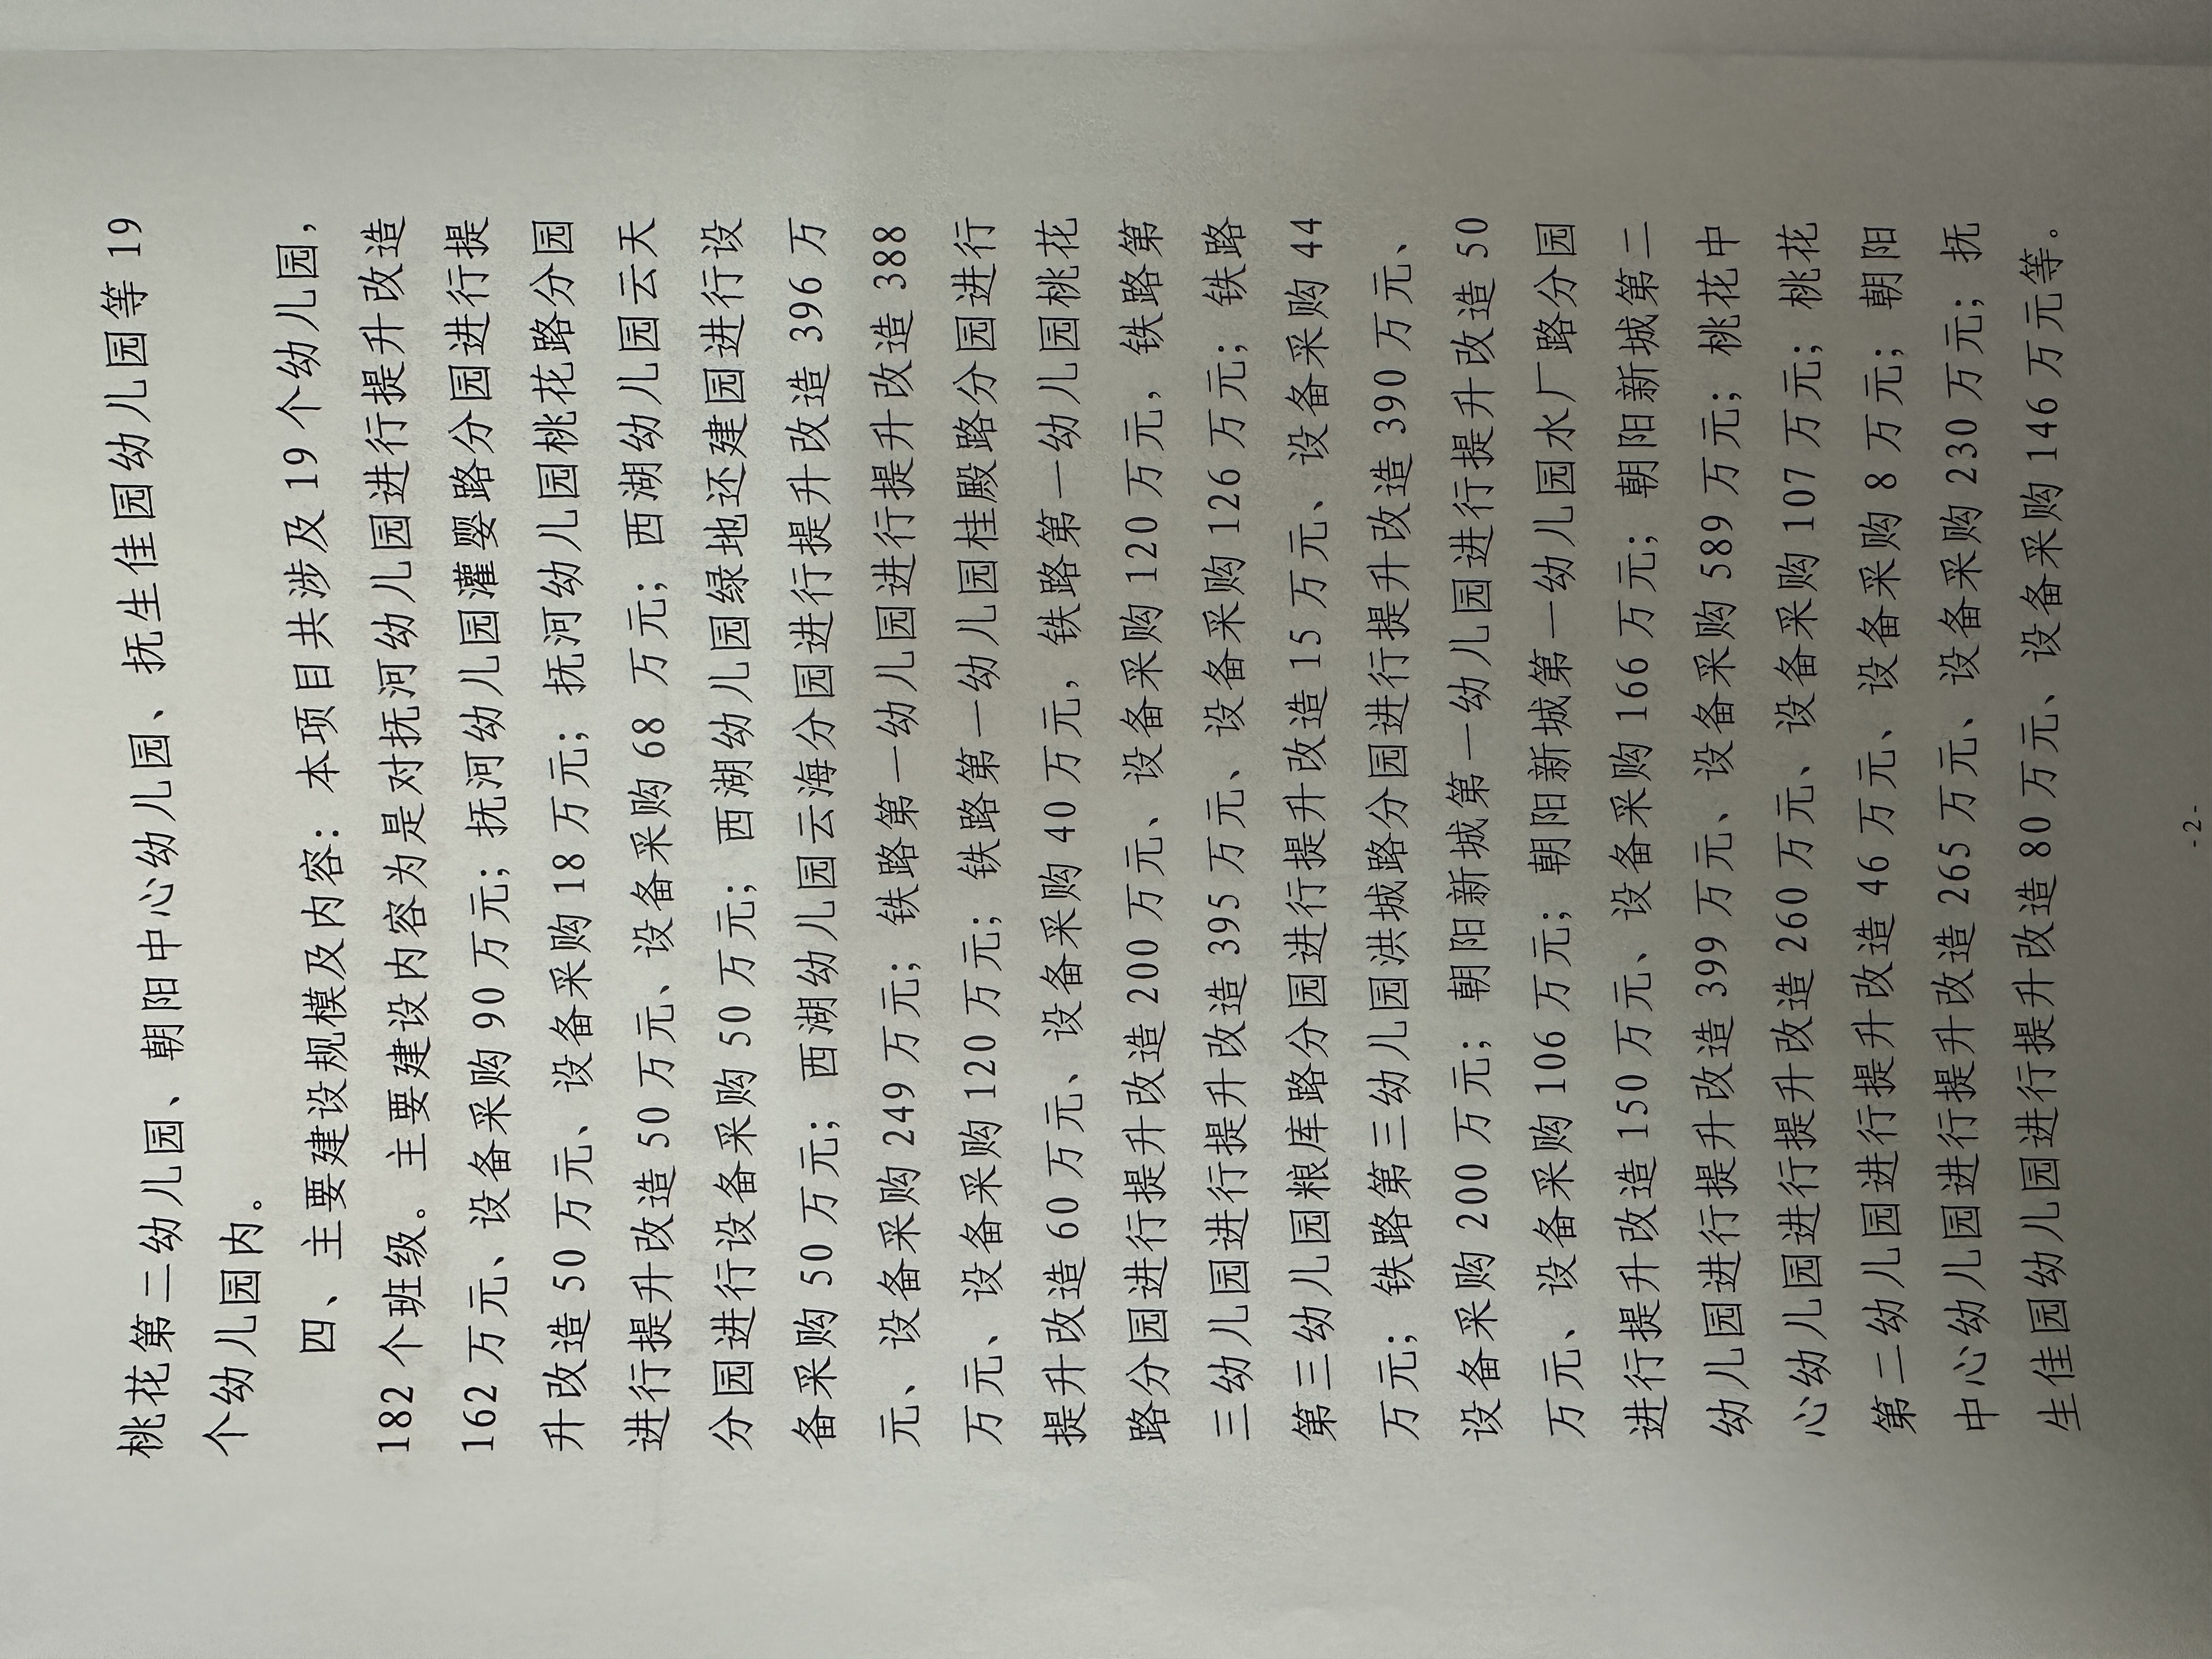 桃花第二幼儿园、朝阳中心幼儿园、抚生佳园幼儿园等 19
个幼儿园内。
四、主要建设规模及内容：本项目共涉及 19 个幼儿园，
182 个班级。主要建设内容为是对抚河幼儿园进行提升改造
162 万元、设备采购 90 万元；抚河幼儿园灌婴路分园进行提
升改造 50 万元、设备采购 18 万元；抚河幼儿园桃花路分园
进行提升改造 50 万元、设备采购 68 万元；西湖幼儿园云天
分园进行设备采购 50 万元；西湖幼儿园绿地还建园进行设
备采购 50 万元；西湖幼儿园云海分园进行提升改造 396 万
元、设备采购 249 万元；铁路第一幼儿园进行提升改造 388
万元、设备采购 120 万元；铁路第一幼儿园桂殿路分园进行
提升改造 60 万元、设备采购 40 万元，铁路第一幼儿园桃花
路分园进行提升改造 200 万元、设备采购 120 万元，铁路第
三幼儿园进行提升改造 395 万元、设备采购 126 万元；铁路
第三幼儿园粮库路分园进行提升改造 15 万元、设备采购 44
万元；铁路第三幼儿园洪城路分园进行提升改造 390 万元、
设备采购 200 万元；朝阳新城第一幼儿园进行提升改造 50
万元、设备采购 106 万元；朝阳新城第一幼儿园水厂路分园
进行提升改造 150 万元、设备采购 166 万元；朝阳新城第二
幼儿园进行提升改造 399 万元、设备采购 589 万元；桃花中
心幼儿园进行提升改造 260 万元、设备采购 107 万元；桃花
第二幼儿园进行提升改造 46 万元、设备采购 8 万元；朝阳
中心幼儿园进行提升改造 265 万元、设备采购 230 万元；抚
生佳园幼儿园进行提升改造 80 万元、设备采购 146 万元等。
- 2 -